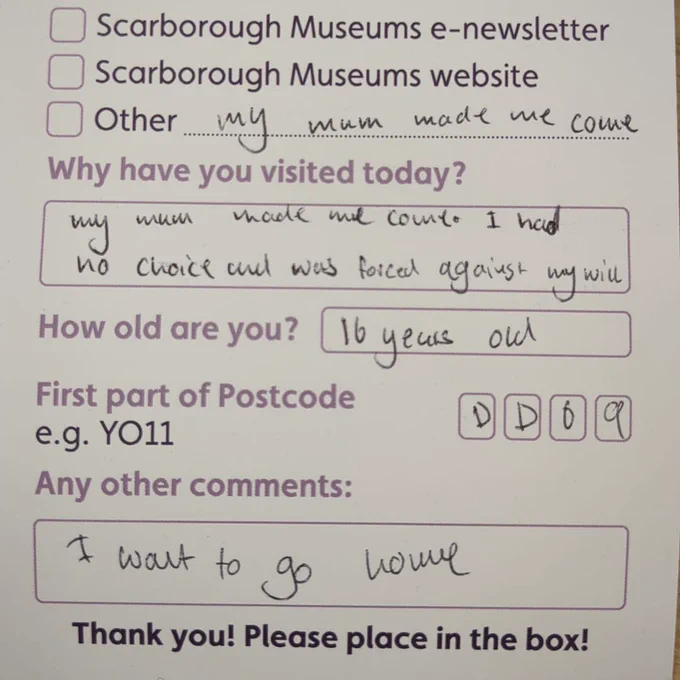 Scarborough Museums e-newsletter
Scarborough Museums website
Other my mum made me come
Why have you visited today?
my mum made me come. I had
no choice and was forced against my will
How old are you? 16 years old
First part of Postcode
e.g. YO11 DD09
Any other comments:
I want to go home
Thank you! Please place in the box!